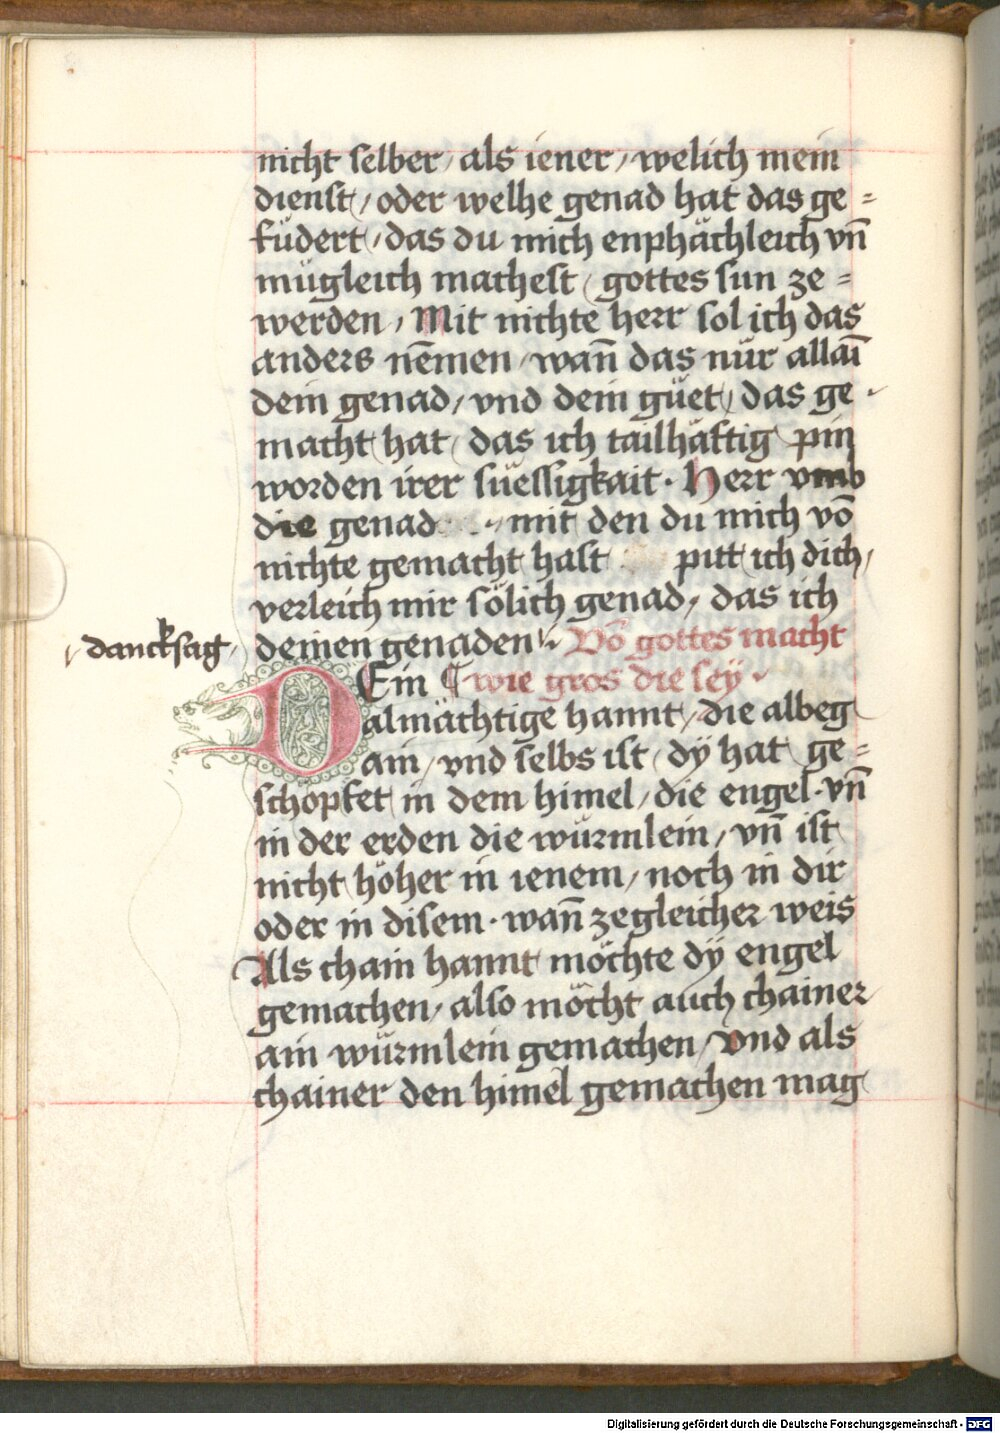 nicht selber, als iener, welich mein
dienst, oder welhe genad hat das ge=
füdert, das du mich enphächleich vn̄
mügleich machest, gottes sun ze=
werden, Mit nichte herr sol ich das
anders nēmen, wan̄ das nür allaī
dein genad, vnd dein güet, das ge-
macht hat, das ich tailhäftig pin
worden irer süessigkait. Herr vmb
die genad, mit den du mich vō
nichte gemacht hast pitt ich dich,
verleich mir sölich genad, das ich
dancksag,
deinen genaden. Vō gottes macht
DEin ¶ wie gros die sey.
almächtige hannt, die albeg
ain, vnd selbs ist, dÿ hat ge=
schöpfet in dem himel, die engel. vn̄
in der erden die würmlein, vn̄ ist
nicht höher in ienem, noch in dir
oder in disem. wan̄ zegleicher weis
Als chain hannt möchte dÿ engel
gemachen, also möcht auch chainer
ain würmlein gemachen, Vnd als
chainer den himel gemachen mag
Digitalisierung gefördert durch die Deutsche Forschungsgemeinschaft - DFG